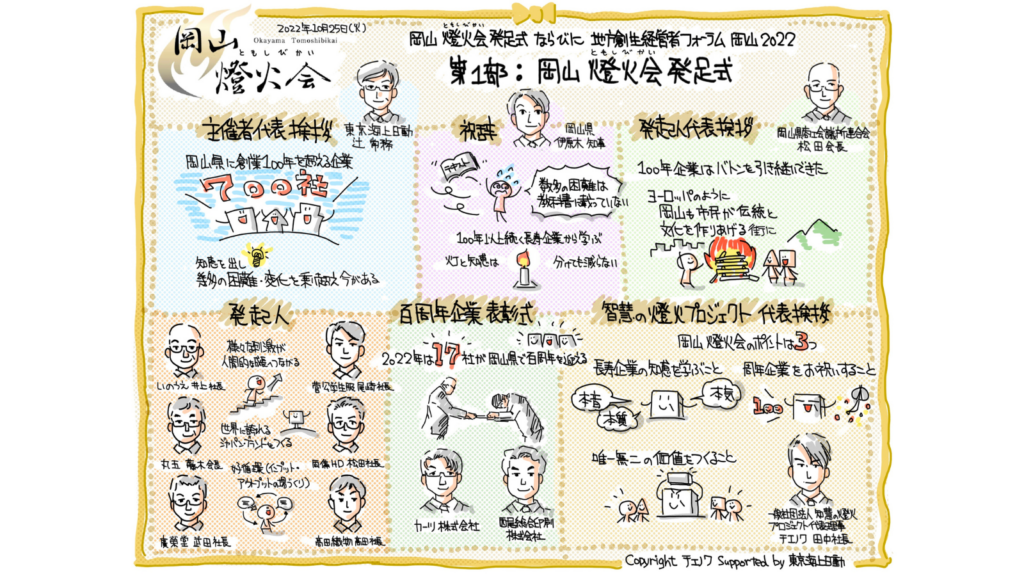 2022年10月25日(火)
岡山
Okayama Tomoshibikai
ともしびかい
燈火会
ともしびかい
岡山 燈火会 発足式 ならびに 地方創生経営者フォーラム 岡山 2022
ともしびかい
第1部：岡山 燈火会 発足式
主催者代表挨拶
東京海上日動
辻 常務
岡山県に創業100年を超える企業
700社
知恵を出し
幾多の困難・変化を乗り越え今がある
祝辞
岡山県
伊原木 知事
テキスト
数多の困難は
教科書に載っていない
100年以上続く長寿企業から学ぶ
灯と知恵は 分けても減らない
発起人代表挨拶
岡山県商工会議所連合会
松田会長
100年企業はバトンを引き継いできた
ヨーロッパのように
岡山も市民が伝統と
文化を作りあげる街に
発起人
様々な刺激が
いのうえ 井上社長
菅公学生服 尾﨑社長
世界に誇れる
ジャパンブランドをつくる
丸五 藤木会長
両備HD 松田社長
好循環(インプット・
アウトプットの場づくり)
廣榮堂 武田社長
髙田織物 髙田社長
百周年企業 表彰式
2022年は17社が岡山県で百周年を迎える
カーツ 株式会社
株式会社
智慧の燈火プロジェクト 代表挨拶
岡山 燈火会のポイントは3つ
長寿企業の知恵を学ぶこと
本音
本気
本質
周年企業をお祝いすること
100
唯一無二の価値をつくること
一般社団法人 智慧の燈火
プロジェクト代表理事
テエノワ 田中社長
Copyright テエノワ Supported by 東京海上日動